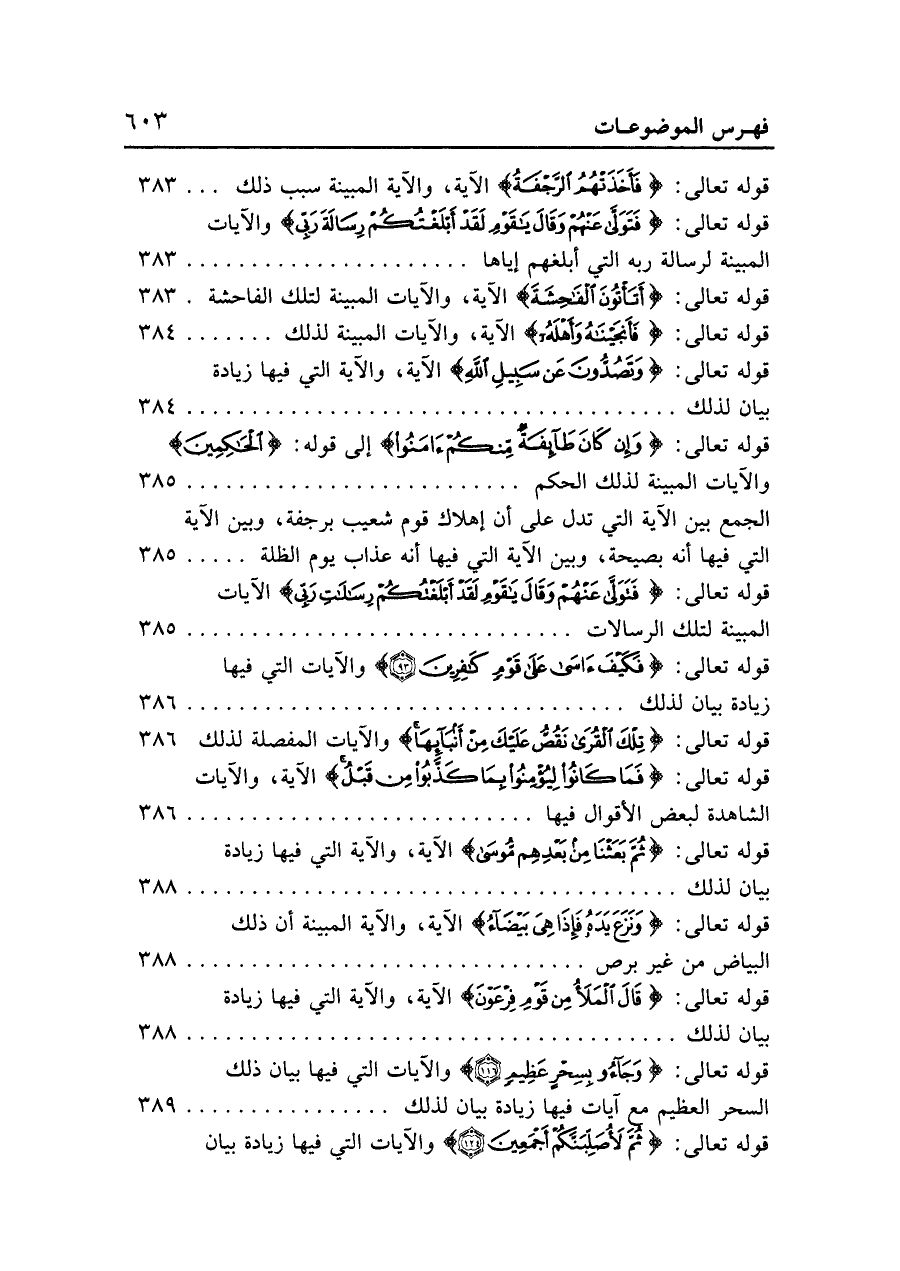 فهـرس الموضوعـات ٦٠٣
قوله تعالى: ﴿ فَأَخَذَتْهُمُ ٱلرَّجْفَةُ﴾ الآية، والآية المبينة سبب ذلك ... ٣٨٣
قوله تعالى: ﴿ فَتَوَلَّىٰ عَنْهُمْ وَقَالَ يَٰقَوْمِ لَقَدْ أَبْلَغْتُكُمْ رِسَالَةَ رَبِّي﴾ والآيات
المبينة لرسالة ربه التي أبلغهم إياها ...................... ٣٨٣
قوله تعالى: ﴿أَتَأْتُونَ ٱلْفَٰحِشَةَ﴾ الآية، والآيات المبينة لتلك الفاحشة . ٣٨٣
قوله تعالى: ﴿ فَأَنجَيْنَٰهُ وَأَهْلَهُۥٓ﴾ الآية، والآيات المبينة لذلك ....... ٣٨٤
قوله تعالى: ﴿ وَتَصُدُّونَ عَن سَبِيلِ ٱللَّهِ﴾ الآية، والآية التي فيها زيادة
بيان لذلك ...................................... ٣٨٤
قوله تعالى: ﴿ وَإِن كَانَ طَآئِفَةٌ مِّنكُمْ ءَامَنُوا۟﴾ إلى قوله: ﴿ٱلْحَٰكِمِينَ﴾
والآيات المبينة لذلك الحكم .......................... ٣٨٥
الجمع بين الآية التي تدل على أن إهلاك قوم شعيب برجفة، وبين الآية
التي فيها أنه بصيحة، وبين الآية التي فيها أنه عذاب يوم الظلة ..... ٣٨٥
قوله تعالى: ﴿ فَتَوَلَّىٰ عَنْهُمْ وَقَالَ يَٰقَوْمِ لَقَدْ أَبْلَغْتُكُمْ رِسَٰلَٰتِ رَبِّي﴾ الآيات
المبينة لتلك الرسالات .............................. ٣٨٥
قوله تعالى: ﴿ فَكَيْفَ ءَاسَىٰ عَلَىٰ قَوْمٍ كَٰفِرِينَ ٩٣﴾ والآيات التي فيها
زيادة بيان لذلك .................................. ٣٨٦
قوله تعالى: ﴿ تِلْكَ ٱلْقُرَىٰ نَقُصُّ عَلَيْكَ مِنْ أَنۢبَآئِهَا﴾ والآيات المفصلة لذلك ٣٨٦
قوله تعالى: ﴿ فَمَا كَانُوا۟ لِيُؤْمِنُوا۟ بِمَا كَذَّبُوا۟ مِن قَبْلُ﴾ الآية، والآيات
الشاهدة لبعض الأقوال فيها ........................... ٣٨٦
قوله تعالى: ﴿ ثُمَّ بَعَثْنَا مِنۢ بَعْدِهِم مُّوسَىٰ﴾ الآية، والآية التي فيها زيادة
بيان لذلك ...................................... ٣٨٨
قوله تعالى: ﴿ وَنَزَعَ يَدَهُۥ فَإِذَا هِىَ بَيْضَآءُ﴾ الآية، والآية المبينة أن ذلك
البياض من غير برص ............................... ٣٨٨
قوله تعالى: ﴿ قَالَ ٱلْمَلَأُ مِن قَوْمِ فِرْعَوْنَ﴾ الآية، والآية التي فيها زيادة
بيان لذلك ...................................... ٣٨٨
قوله تعالى: ﴿ وَجَآءُو بِسِحْرٍ عَظِيمٍ ١١٦﴾ والآيات التي فيها بيان ذلك
السحر العظيم مع آيات فيها زيادة بيان لذلك ................ ٣٨٩
قوله تعالى: ﴿ ثُمَّ لَأُصَلِّبَنَّكُمْ أَجْمَعِينَ ١٢٤﴾ والآيات التي فيها زيادة بيان